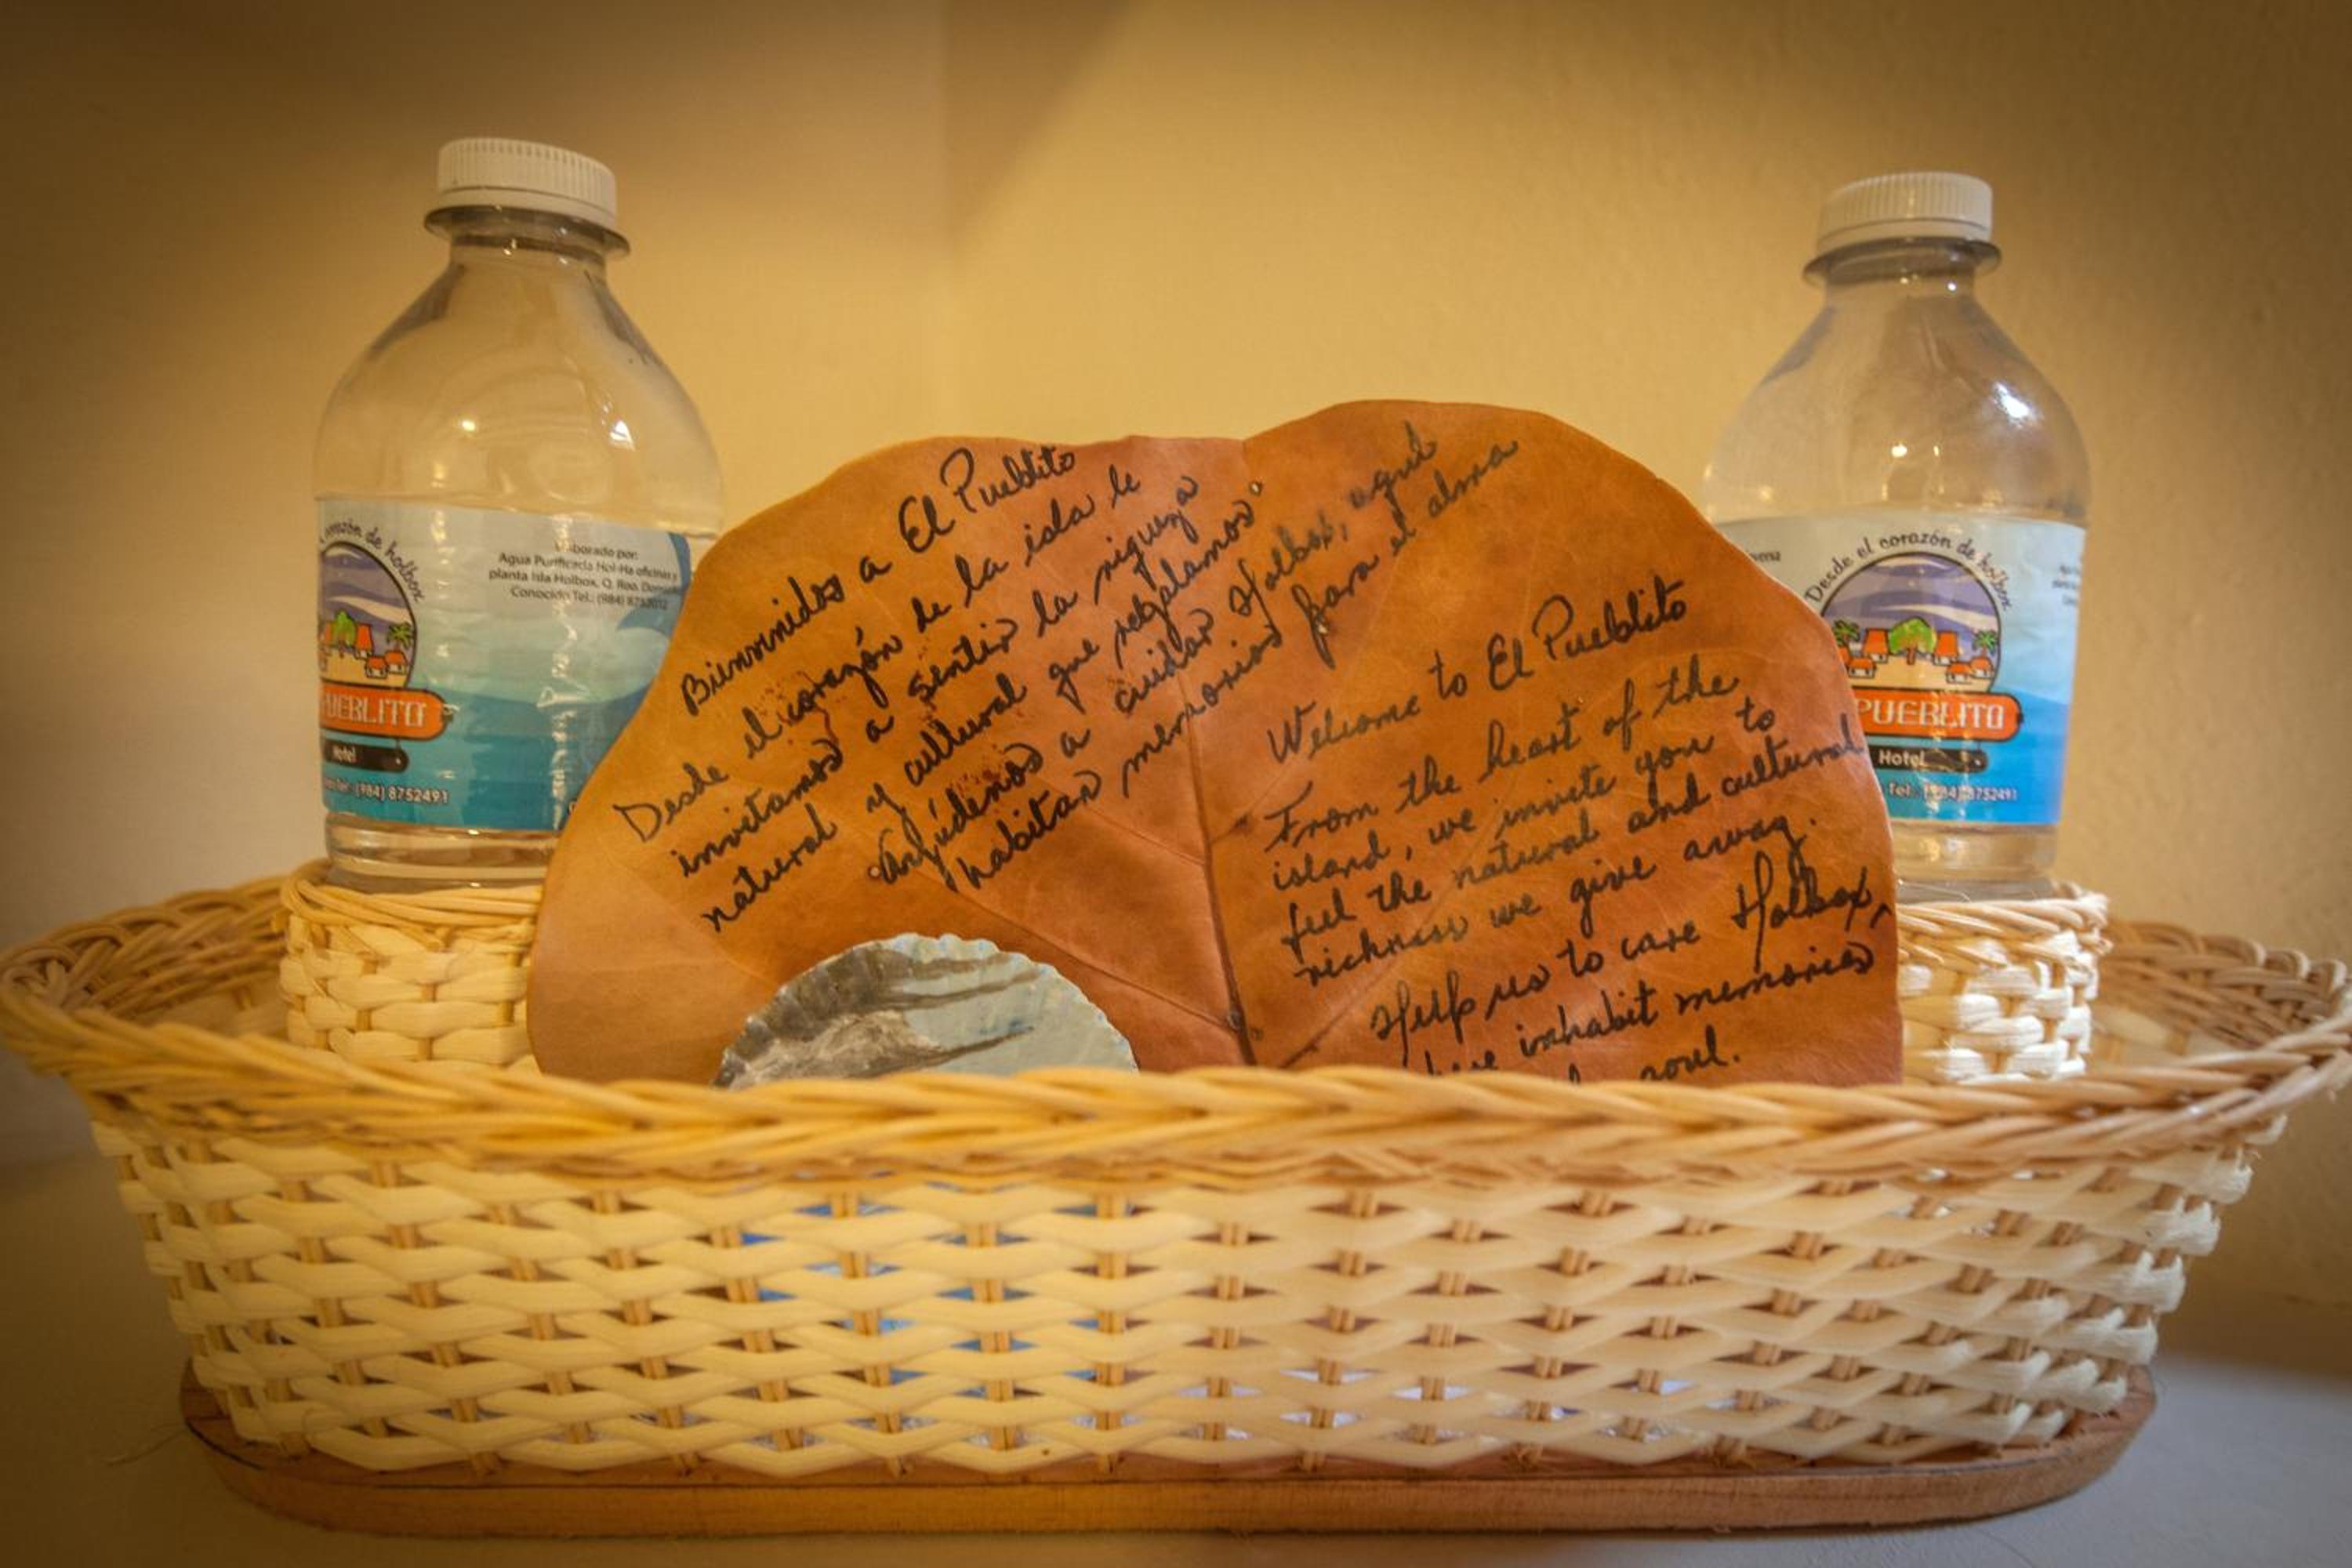 Bienvenidos a El Pueblito
Desde el corazón de la isla le
invitamos a sentir la riqueza
natural y cultural que regalamos.
Ayúdenos a cuidar Holbox, aquí
habitan memorias para el alma
Welcome to El Pueblito
From the heart of the
island, we invite you to
feel the natural and cultural
richness we give away.
Help us to care Holbox,
inhabit memories
soul.
corazón de holbox
PUEBLITO
Hotel
(984) 8752491
Elaborado por:
Agua Purificada Hol-Ha oficinas y
planta Isla Holbox, Q. Roo, Domicilio
Conocido Tel.: (984) 8752012
Desde el corazón de holbox
PUEBLITO
Hotel
Tel.: (984) 8752491